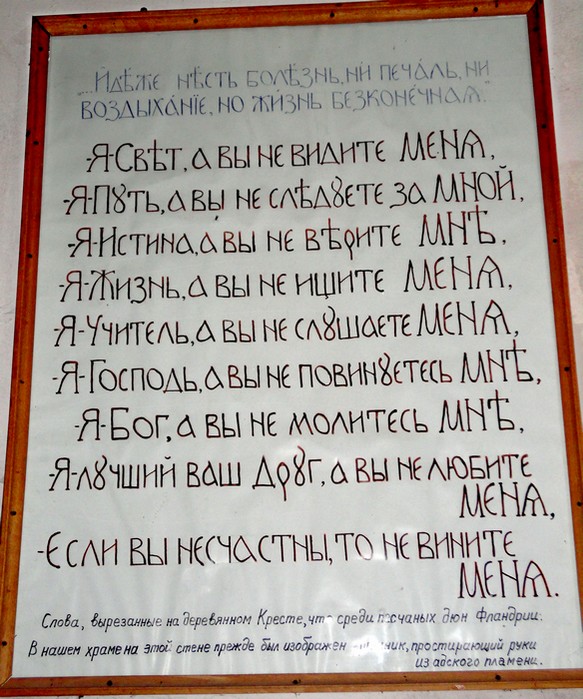 ...Идѣже нѣсть болѣзнь, ни печа́ль, ни
воздыха́нїе, но жи́знь безконе́чная."
-Я-Свѣт, а вы не видите МЕНѦ,
-Я-Пꙋть, а вы не слѣдꙋете за МНОЙ,
-Я-Истина, а вы не вѣрите МНѢ,
-Я-Жизнь, а вы не ищите МЕНѦ,
-Я-Учитель, а вы не слꙋшаете МЕНѦ,
-Я-Господь, а вы не повинꙋетесь МНѢ,
-Я-Бог, а вы не молитесь МНѢ,
-Я-лꙋчший ваш Дрꙋг, а вы не любите
МЕНѦ,
-Если вы несчастны, то не вините
МЕНѦ.
Слова, вырезанные на деревянном Кресте, что среди песчаных дюн Фландрии.
В нашем храме на этой стене прежде был изображен простирающий руки
из адского пламени.